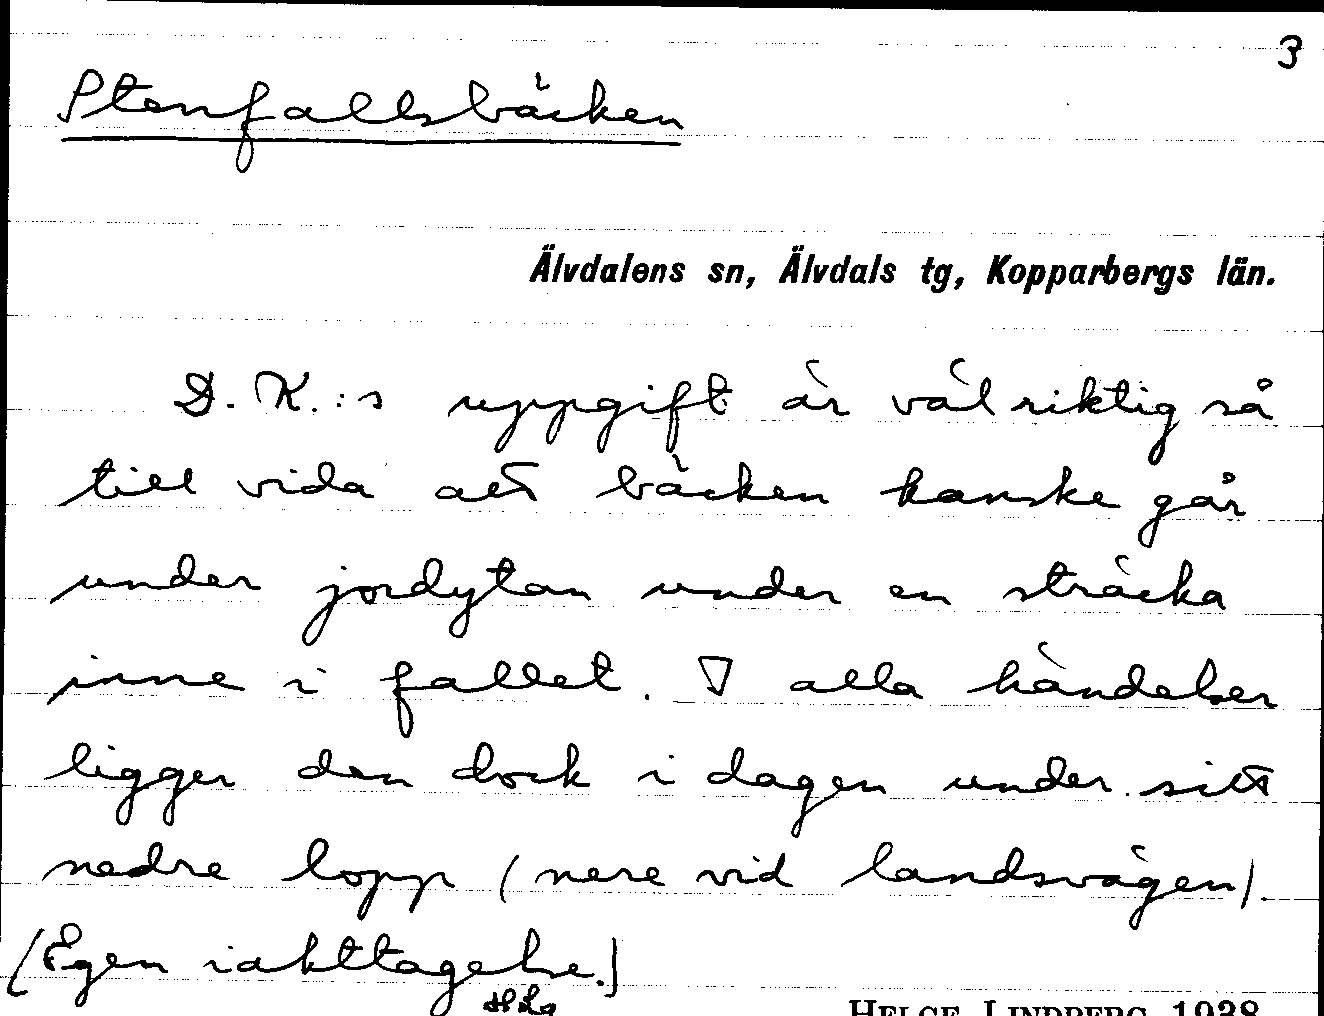 3
Stenfallsbäcken
Älvdalens sn, Älvdals tg, Kopparbergs län.
D. K.:s uppgift är väl riktig så
till vida att bäcken kanske går
under jordytan under en sträcka
inne i fallet. I alla händelser
ligger den dock i dagen under sitt
nedre lopp (nere vid landsvägen).
(Egen iakttagelse.)
HLg
HELGE LINDBERG 1938